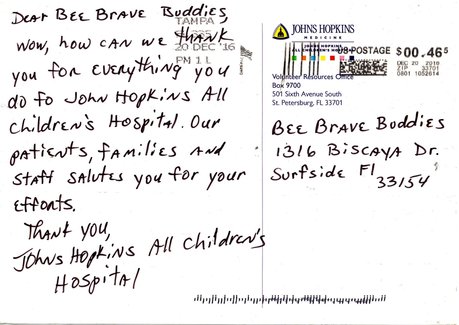 Dear Bee Brave Buddies,
Wow, how can we thank
you for everything you
do fo John Hopkins All
Children's Hospital. Our
patients, families and
staff salutes you for your
efforts.
Thank you,
Johns Hopkins All Children's
Hospital
TAMPA
20 DEC '16
PM 1 L
JOHNS HOPKINS
MEDICINE
JOHNS HOPKINS
ALL CHILDREN'S HOSPITAL
US POSTAGE $00.46⁵
DEC 20 2016
ZIP 33701
0801 1052614
Volunteer Resources Office
Box 9700
501 Sixth Avenue South
St. Petersburg, FL 33701
Bee Brave Buddies
1316 Biscaya Dr.
Surfside Fl
33154